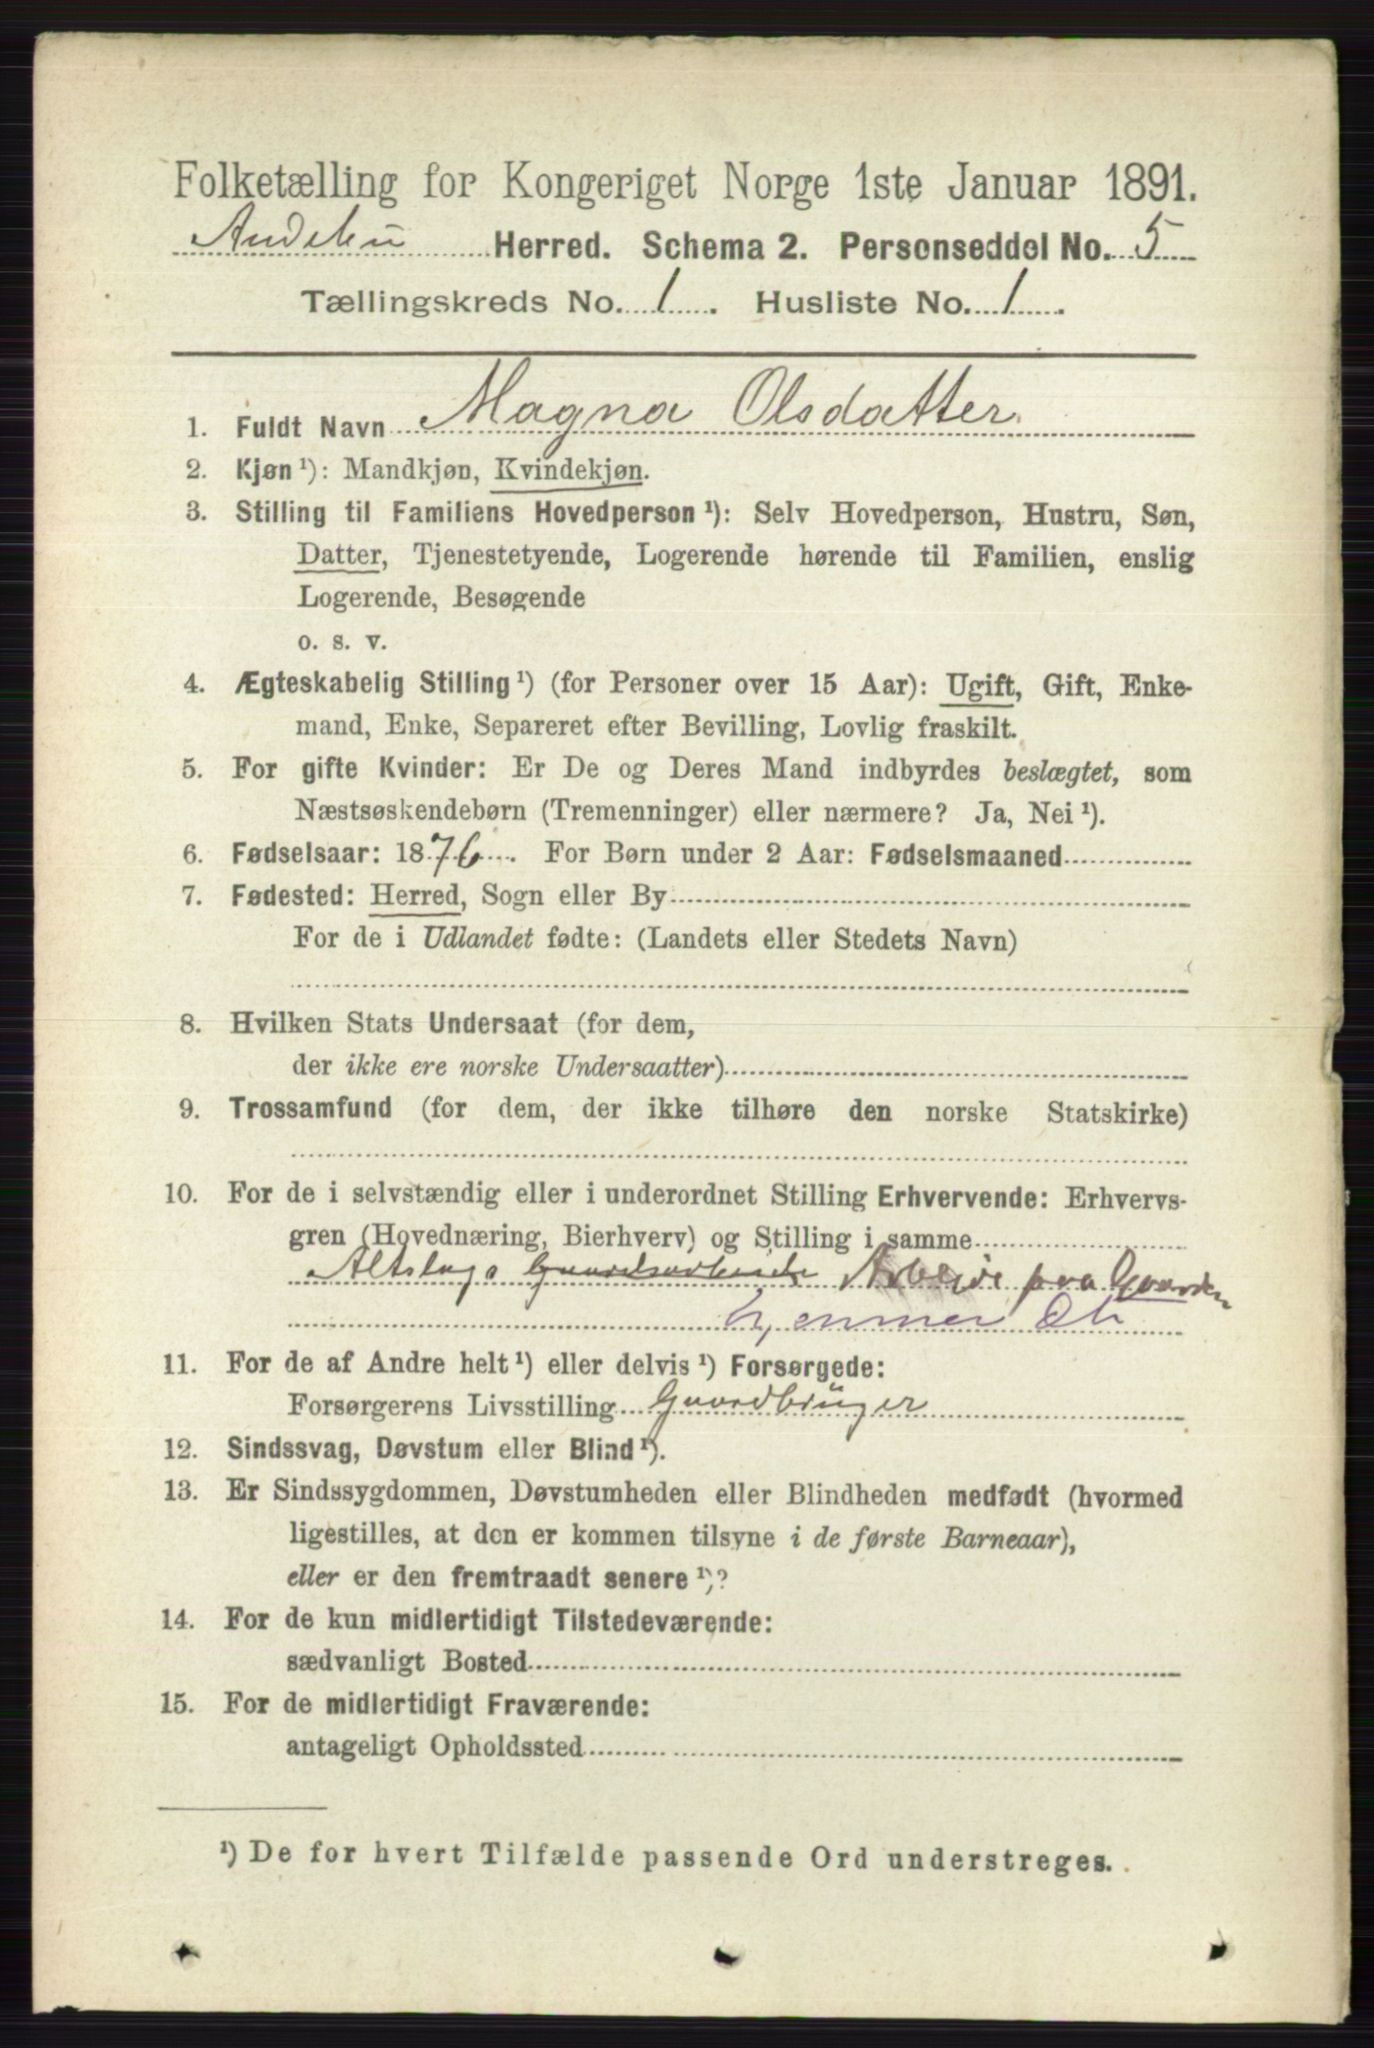 Folketælling for Kongeriget Norge 1ste Januar 1891.
Andebu Herred. Schema 2. Personseddel No. 5
Tællingskreds No. 1. Husliste No. 1.
1. Fuldt Navn Magna Olsdatter.
2. Kjøn ¹): Mandkjøn, Kvindekjøn.
3. Stilling til Familiens Hovedperson ¹): Selv Hovedperson, Hustru, Søn,
Datter, Tjenestetyende, Logerende hørende til Familien, enslig
Logerende, Besøgende
o. s. v.
4. Ægteskabelig Stilling ¹) (for Personer over 15 Aar): Ugift, Gift, Enke-
mand, Enke, Separeret efter Bevilling, Lovlig fraskilt.
5. For gifte Kvinder: Er De og Deres Mand indbyrdes beslægtet, som
Næstsøskendebørn (Tremenninger) eller nærmere? Ja, Nei ¹).
6. Fødselsaar: 1876. For Børn under 2 Aar: Fødselsmaaned
7. Fødested: Herred, Sogn eller By
For de i Udlandet fødte: (Landets eller Stedets Navn)
8. Hvilken Stats Undersaat (for dem,
der ikke ere norske Undersaatter)
9. Trossamfund (for dem, der ikke tilhøre den norske Statskirke)
10. For de i selvstændig eller i underordnet Stilling Erhvervende: Erhvervs-
gren (Hovednæring, Bierhverv) og Stilling i samme
Altslags Gaardsarbeide Arbeide paa Gaarden
11. For de af Andre helt ¹) eller delvis ¹) Forsørgede:
Forsørgerens Livsstilling Gaardbruger
12. Sindssvag, Døvstum eller Blind ¹).
13. Er Sindssygdommen, Døvstumheden eller Blindheden medfødt (hvormed
ligestilles, at den er kommen tilsyne i de første Barneaar),
eller er den fremtraadt senere ¹)?
14. For de kun midlertidigt Tilstedeværende:
sædvanligt Bosted
15. For de midlertidigt Fraværende:
antageligt Opholdssted
¹) De for hvert Tilfælde passende Ord understreges.